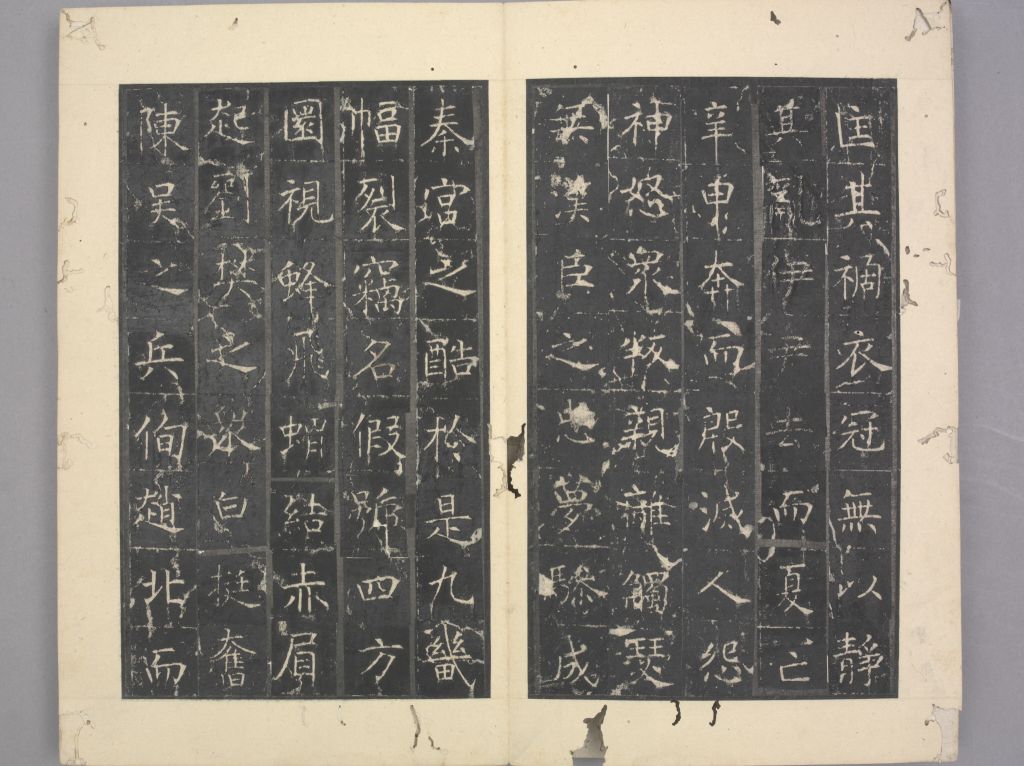 匡其禍衣冠無以靜
其亂伊尹去而夏亡
辛甲奔而殷滅人怨
神怒衆叛親離觸瑟
無漢臣之忠夢驂成
秦宮之酷於是九畿
幅裂竊名假號四方
圜視蜂飛蝟結赤眉
起劉樊之衆白挺奮
陳吳之兵侚趙北而